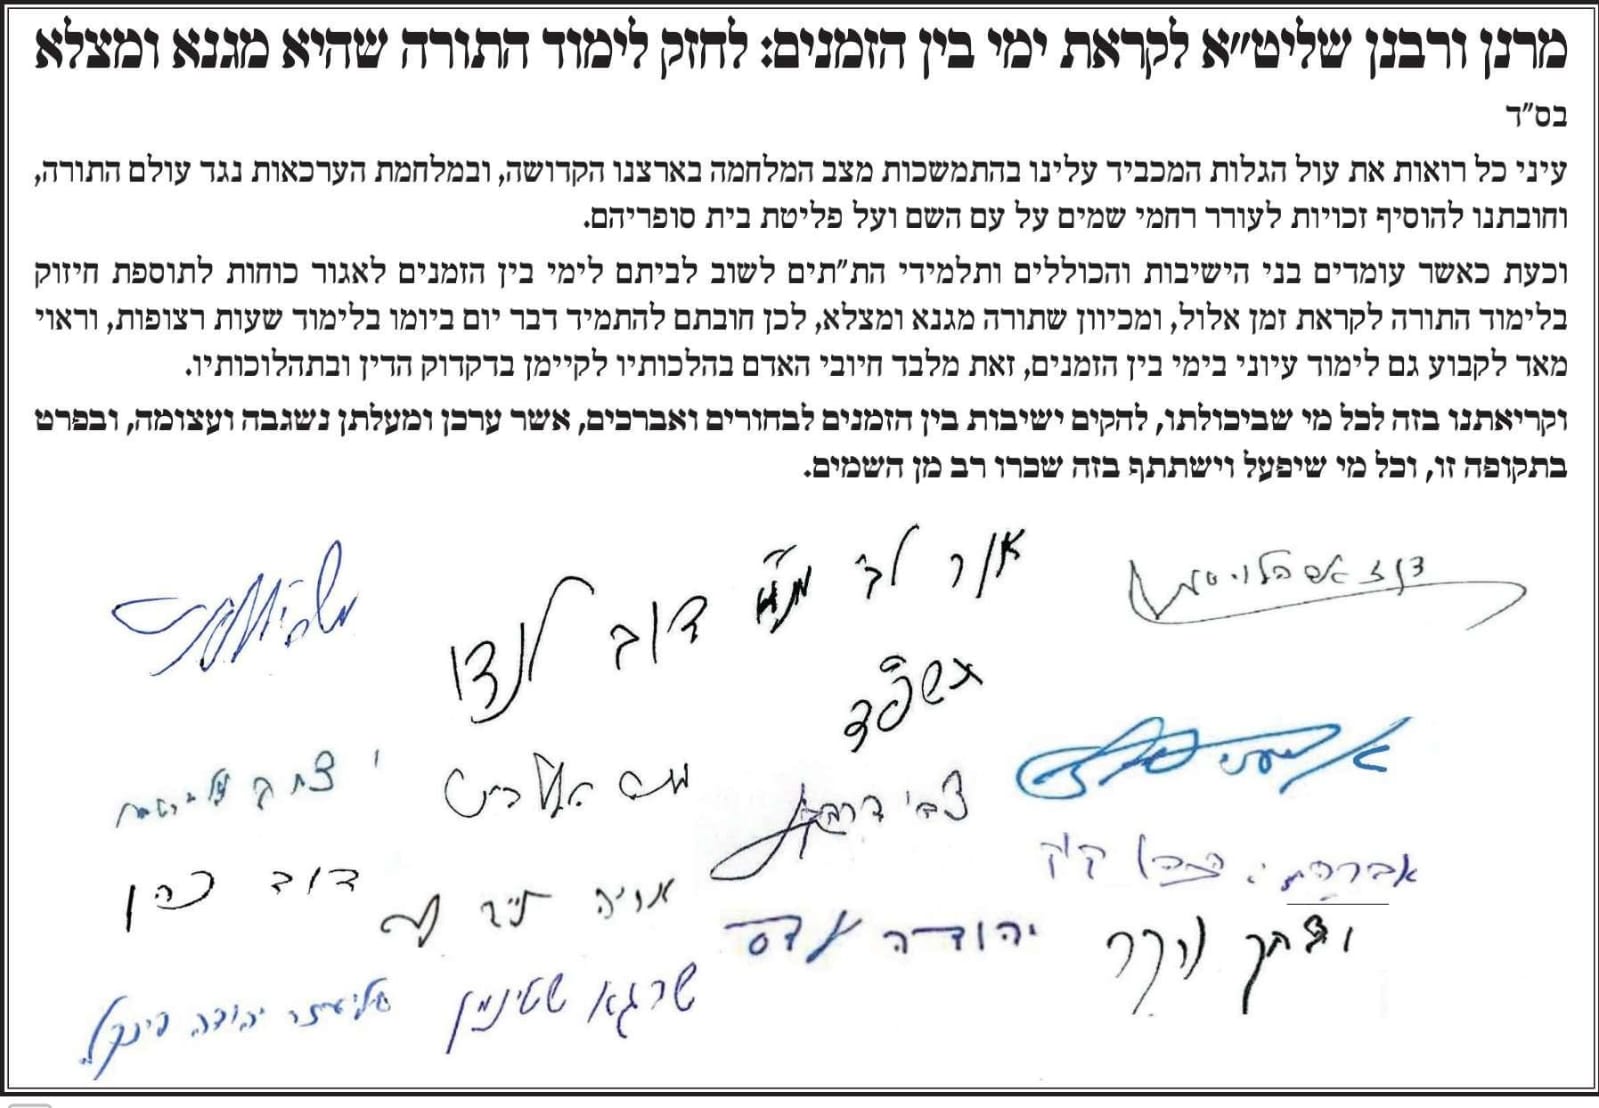 מרנן ורבנן שליט"א לקראת ימי בין הזמנים: לחזק לימוד התורה שהיא מגנא ומצלא
בס"ד
עיני כל רואות את עול הגלות המכביד עלינו בהתמשכות מצב המלחמה בארצנו הקדושה, ובמלחמת הערכאות נגד עולם התורה,
וחובתנו להוסיף זכויות לעורר רחמי שמים על עם השם ועל פליטת בית סופריהם.
וכעת כאשר עומדים בני הישיבות והכוללים ותלמידי הת"תים לשוב לביתם לימי בין הזמנים לאגור כוחות לתוספת חיזוק
בלימוד התורה לקראת זמן אלול, ומכיוון שתורה מגנא ומצלא, לכן חובתם להתמיד דבר יום ביומו בלימוד שעות רצופות, וראוי
מאד לקבוע גם לימוד עיוני בימי בין הזמנים, זאת מלבד חיובי האדם בהלכותיו לקיימן בדקדוק הדין ובתהלוכותיו.
וקריאתנו בזה לכל מי שביכולתו, להקים ישיבות בין הזמנים לבחורים ואברכים, אשר ערכן ומעלתן נשגבה ועצומה, ובפרט
בתקופה זו, וכל מי שיפעל וישתתף בזה שכרו רב מן השמים.
דוב לנדו
תשפ"ד
צבי
יצחק
אברהם
דוד כהן
יהודה עדס
שרגא שטינמן
אליעזר יהודה פינקל